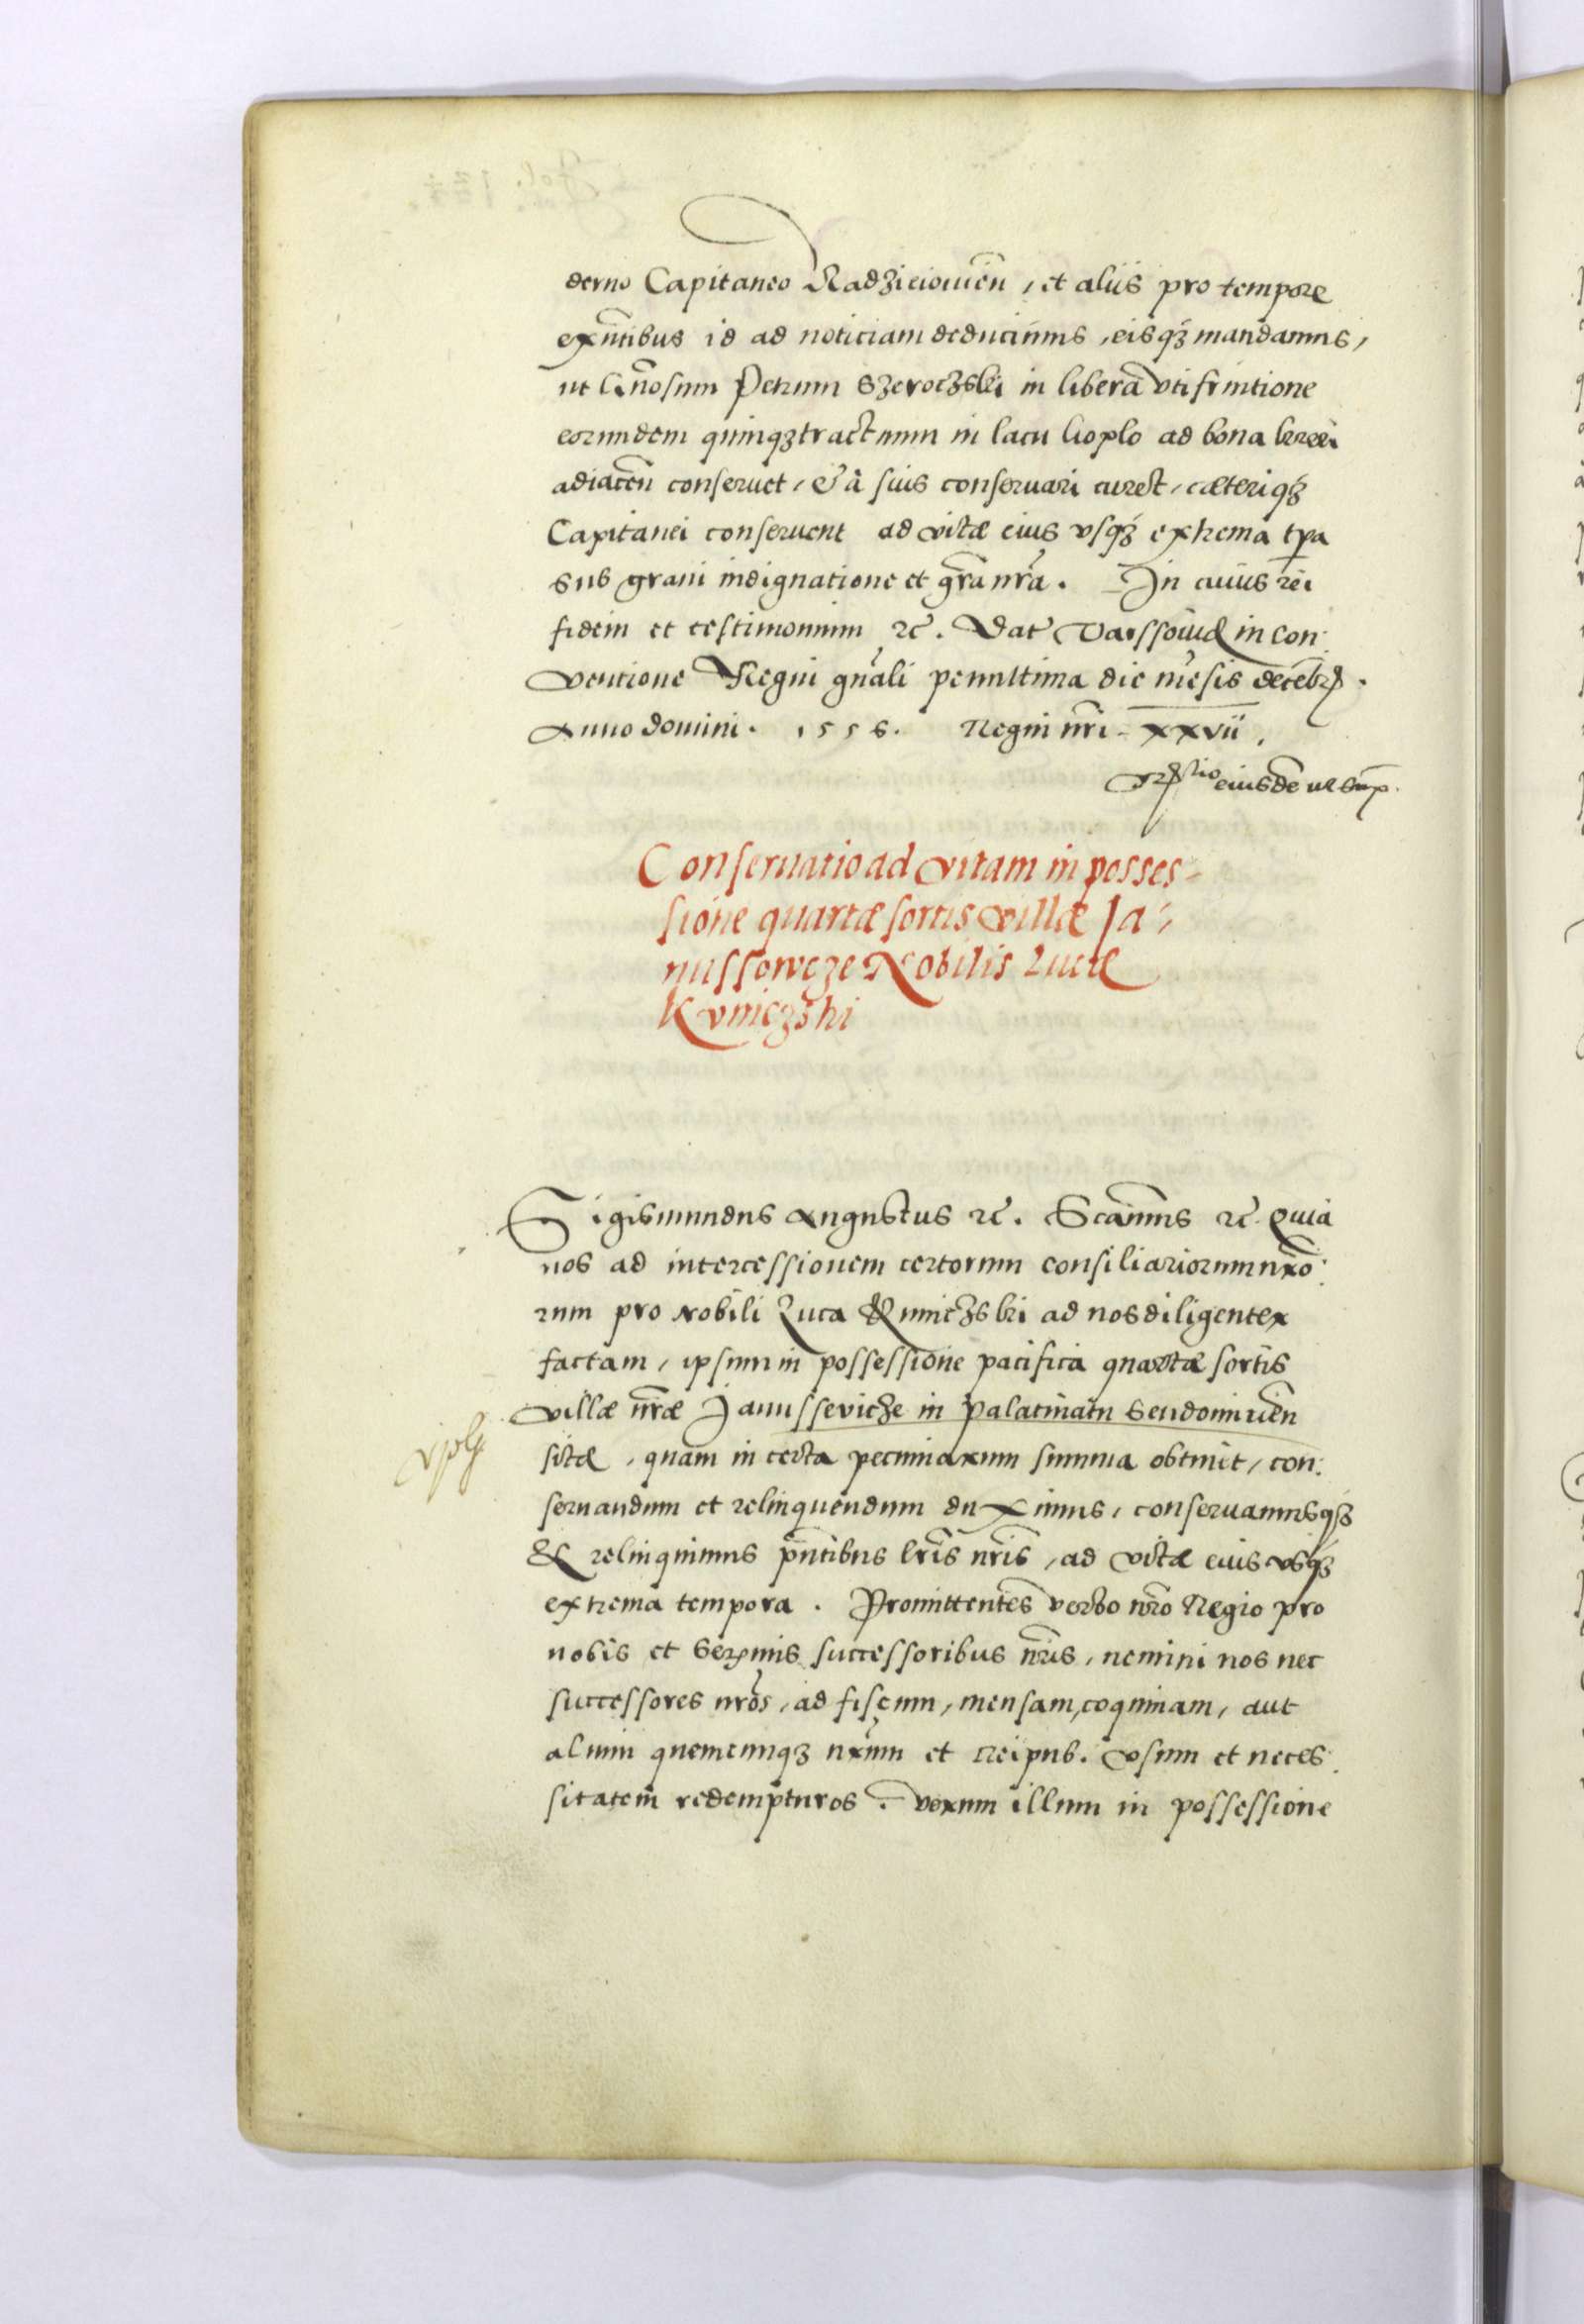 derno Capitaneo Radzieiowien̄, et aliis pro tempore
exn̄tibus id ad noticiam deducimus, eisqꝫ mandamus,
ut Gn̄osum Petrum Szeroczski in libera utifruitione
eorundem quinqꝫ tractuum in lacu Goplo ad bona
adiacen̄ conseruet, & à suis conseruari curet, cæteriqꝫ
Capitanei conseruent ad vitæ eius vsqꝫ extrema tp̄a
sub graui indignatione et gr̄a nr̄a. In cuius rei
fidem et testimonium ꝛc̄. Dat̄ Varssouiæ in Con:
ventione Regni gn̄ali penultima die mēsis decēbr̄.
Anno domini. 1556. Regni nr̄i xxvii.
eiusdē ut sup̄.
Conseruatio ad vitam in posses-
sione quartæ sortis villæ Ja-
nussowcze Nobilis Lucæ
Kvniczski
Sigismundus Augustus ꝛc̄. Scimus ꝛc̄. Quia
nos ad intercessionem certorum consiliariorum nr̄o:
rum pro Nobili Luca Kuniczski ad nos diligenter
factam, ipsum in possessione pacifica quartæ sortis
villæ nr̄æ Janusseviche in palatinatu Sendomirien̄
sitæ, quam in certa pecuniarum summa obtinet, con:
seruandum et relinquendum duximus, conseruamusqꝫ
& relinquimus pn̄tibus lr̄is nr̄is, ad vitæ eius vsqꝫ
extrema tempora. Promittentes verbo nr̄o Regio pro
nobis et Serꝫmis successoribus nr̄is, nemini nos nec
successores nr̄os, ad fiscum, mensam, coquinam, aut
alium quemcunqꝫ nr̄um et Reipub. vsum et neces:
sitatem redempturos. Verum illum in possessione